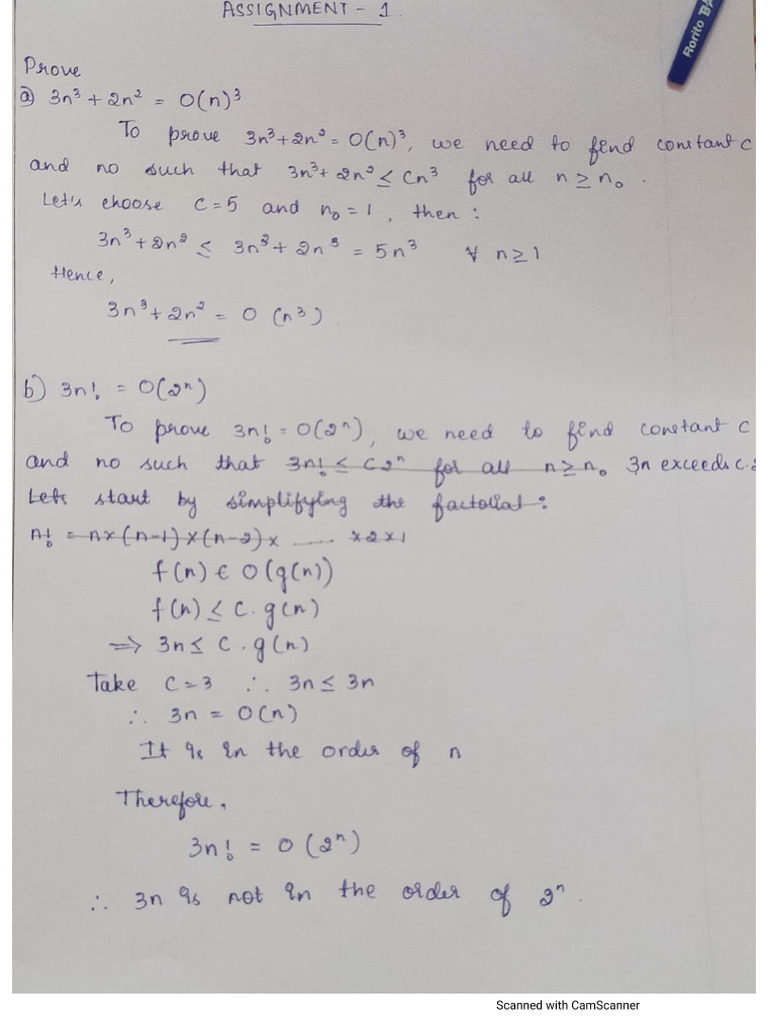 ASSIGNMENT - 1.
Rorito BA
Prove
a) 3n³ + 2n² = O(n)³
To prove 3n³+2n² = O(n)³, we need to find constant c
and no such that 3n³+ 2n² ≤ Cn³ for all n ≥ n₀.
Let's choose C=5 and n₀=1, then :
3n³+2n² ≤ 3n³+ 2n³ = 5n³ ∀ n≥1
Hence,
3n³+2n² = O (n³)
b) 3n! = O(2ⁿ)
To prove 3n! = O(2ⁿ), we need to find constant c
and no such that 3n! ≤ C2ⁿ for all n≥n₀ 3n exceeds c.2
Lets start by simplifying the factorial:
n! = n×(n-1)×(n-2)× ...... ×2×1
f(n) ∈ O(g(n))
f(n) ≤ C. g(n)
⇒ 3n ≤ C. g(n)
Take C=3 ∴ 3n ≤ 3n
∴ 3n = O(n)
It is in the order of n
Therefore,
3n! = O (2ⁿ)
∴ 3n is not in the order of 2ⁿ.
Scanned with CamScanner